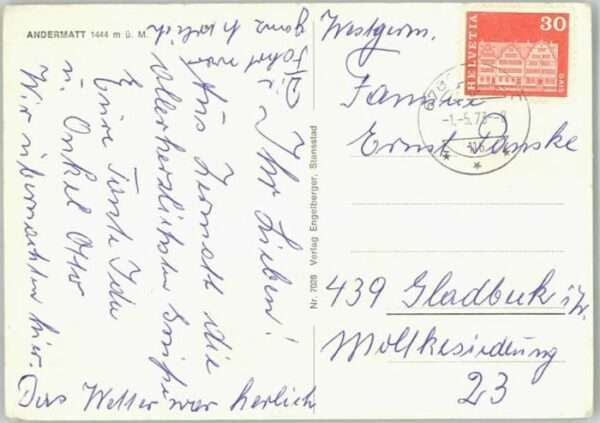 ANDERMATT 1444 m ü. M.
Ihr Lieben!
Aus Zermatt die
allerherzlichsten Grüße
Eure Tante Ida
u. Onkel Otto
Wir übernachten hier.
Das Wetter war herlich
Fahrt war
ganz herlich
Nr. 7029 Verlag Engelberger, Stansstad
HELVETIA
30
GAIS
-1.-5.73-8
Westgerm.
Familie
Ernst
439 Gladbeck i. W.
Moltkesiedlung
23